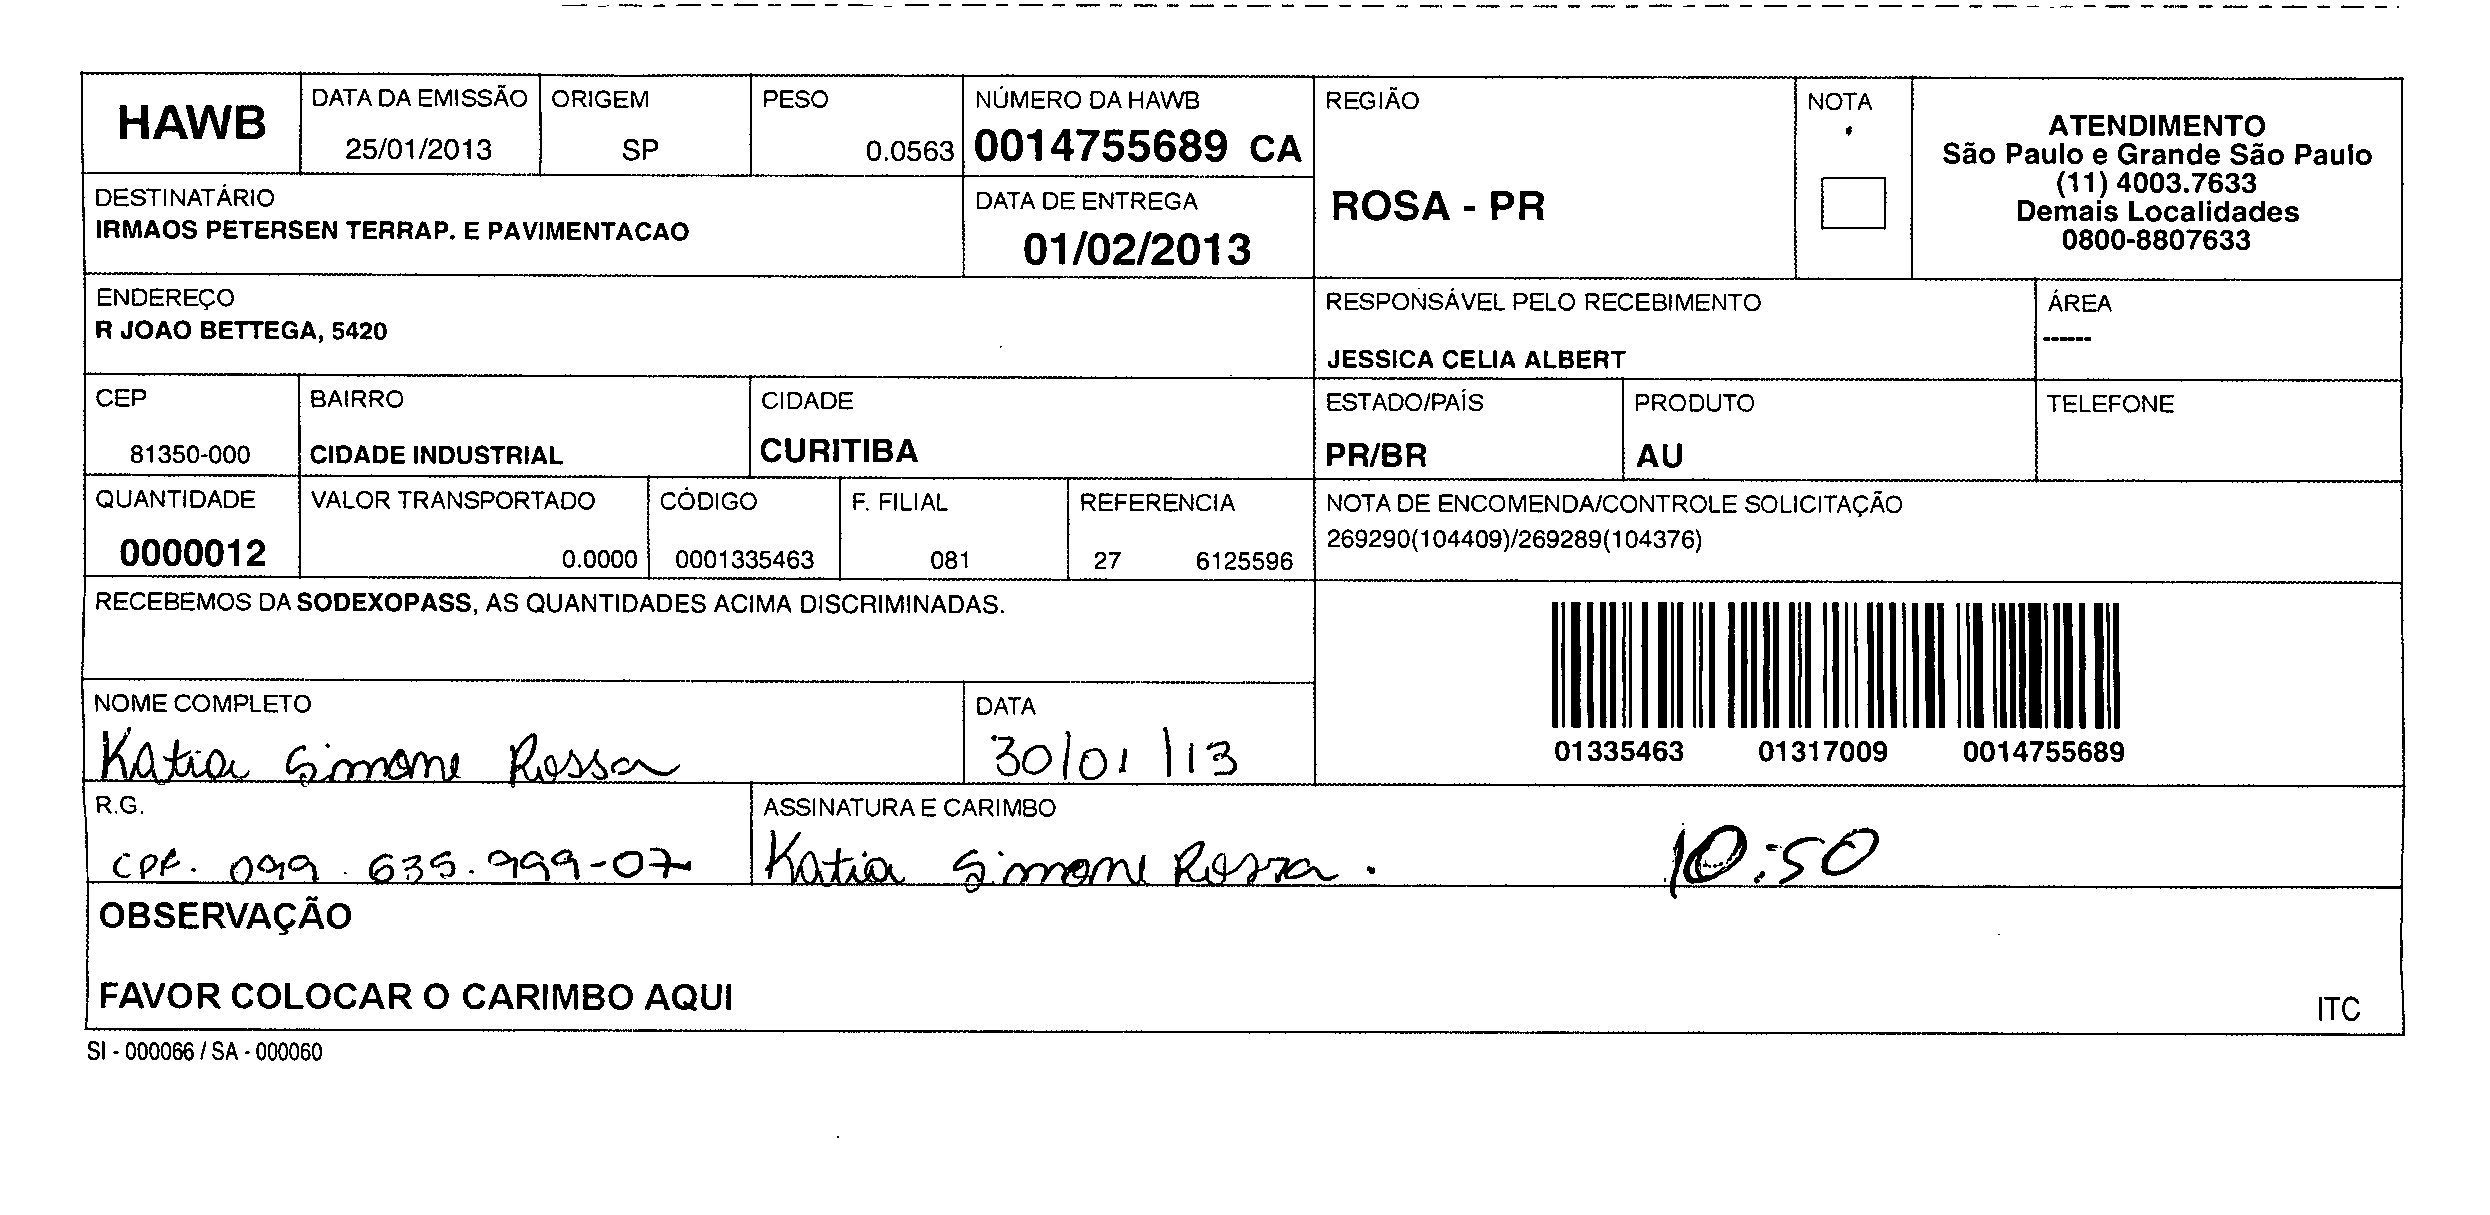 HAWB
DATA DA EMISSÃO
25/01/2013
ORIGEM
SP
PESO
0.0563
NÚMERO DA HAWB
0014755689 CA
REGIÃO
ROSA - PR
NOTA
ATENDIMENTO
São Paulo e Grande São Paulo
(11) 4003.7633
Demais Localidades
0800-8807633
DESTINATÁRIO
IRMAOS PETERSEN TERRAP. E PAVIMENTACAO
DATA DE ENTREGA
01/02/2013
ENDEREÇO
R JOAO BETTEGA, 5420
RESPONSÁVEL PELO RECEBIMENTO
JESSICA CELIA ALBERT
ÁREA
------
CEP
81350-000
BAIRRO
CIDADE INDUSTRIAL
CIDADE
CURITIBA
ESTADO/PAÍS
PR/BR
PRODUTO
AU
TELEFONE
QUANTIDADE
0000012
VALOR TRANSPORTADO
0.0000
CÓDIGO
0001335463
F. FILIAL
081
REFERENCIA
27 6125596
NOTA DE ENCOMENDA/CONTROLE SOLICITAÇÃO
269290(104409)/269289(104376)
RECEBEMOS DA SODEXOPASS, AS QUANTIDADES ACIMA DISCRIMINADAS.
01335463 01317009 0014755689
NOME COMPLETO
Katia Simone Rossa
DATA
30/01/13
R.G.
CPF. 099.635.999-07
ASSINATURA E CARIMBO
Katia Simone Rossa.
10:50
OBSERVAÇÃO
FAVOR COLOCAR O CARIMBO AQUI
ITC
SI - 000066 / SA - 000060